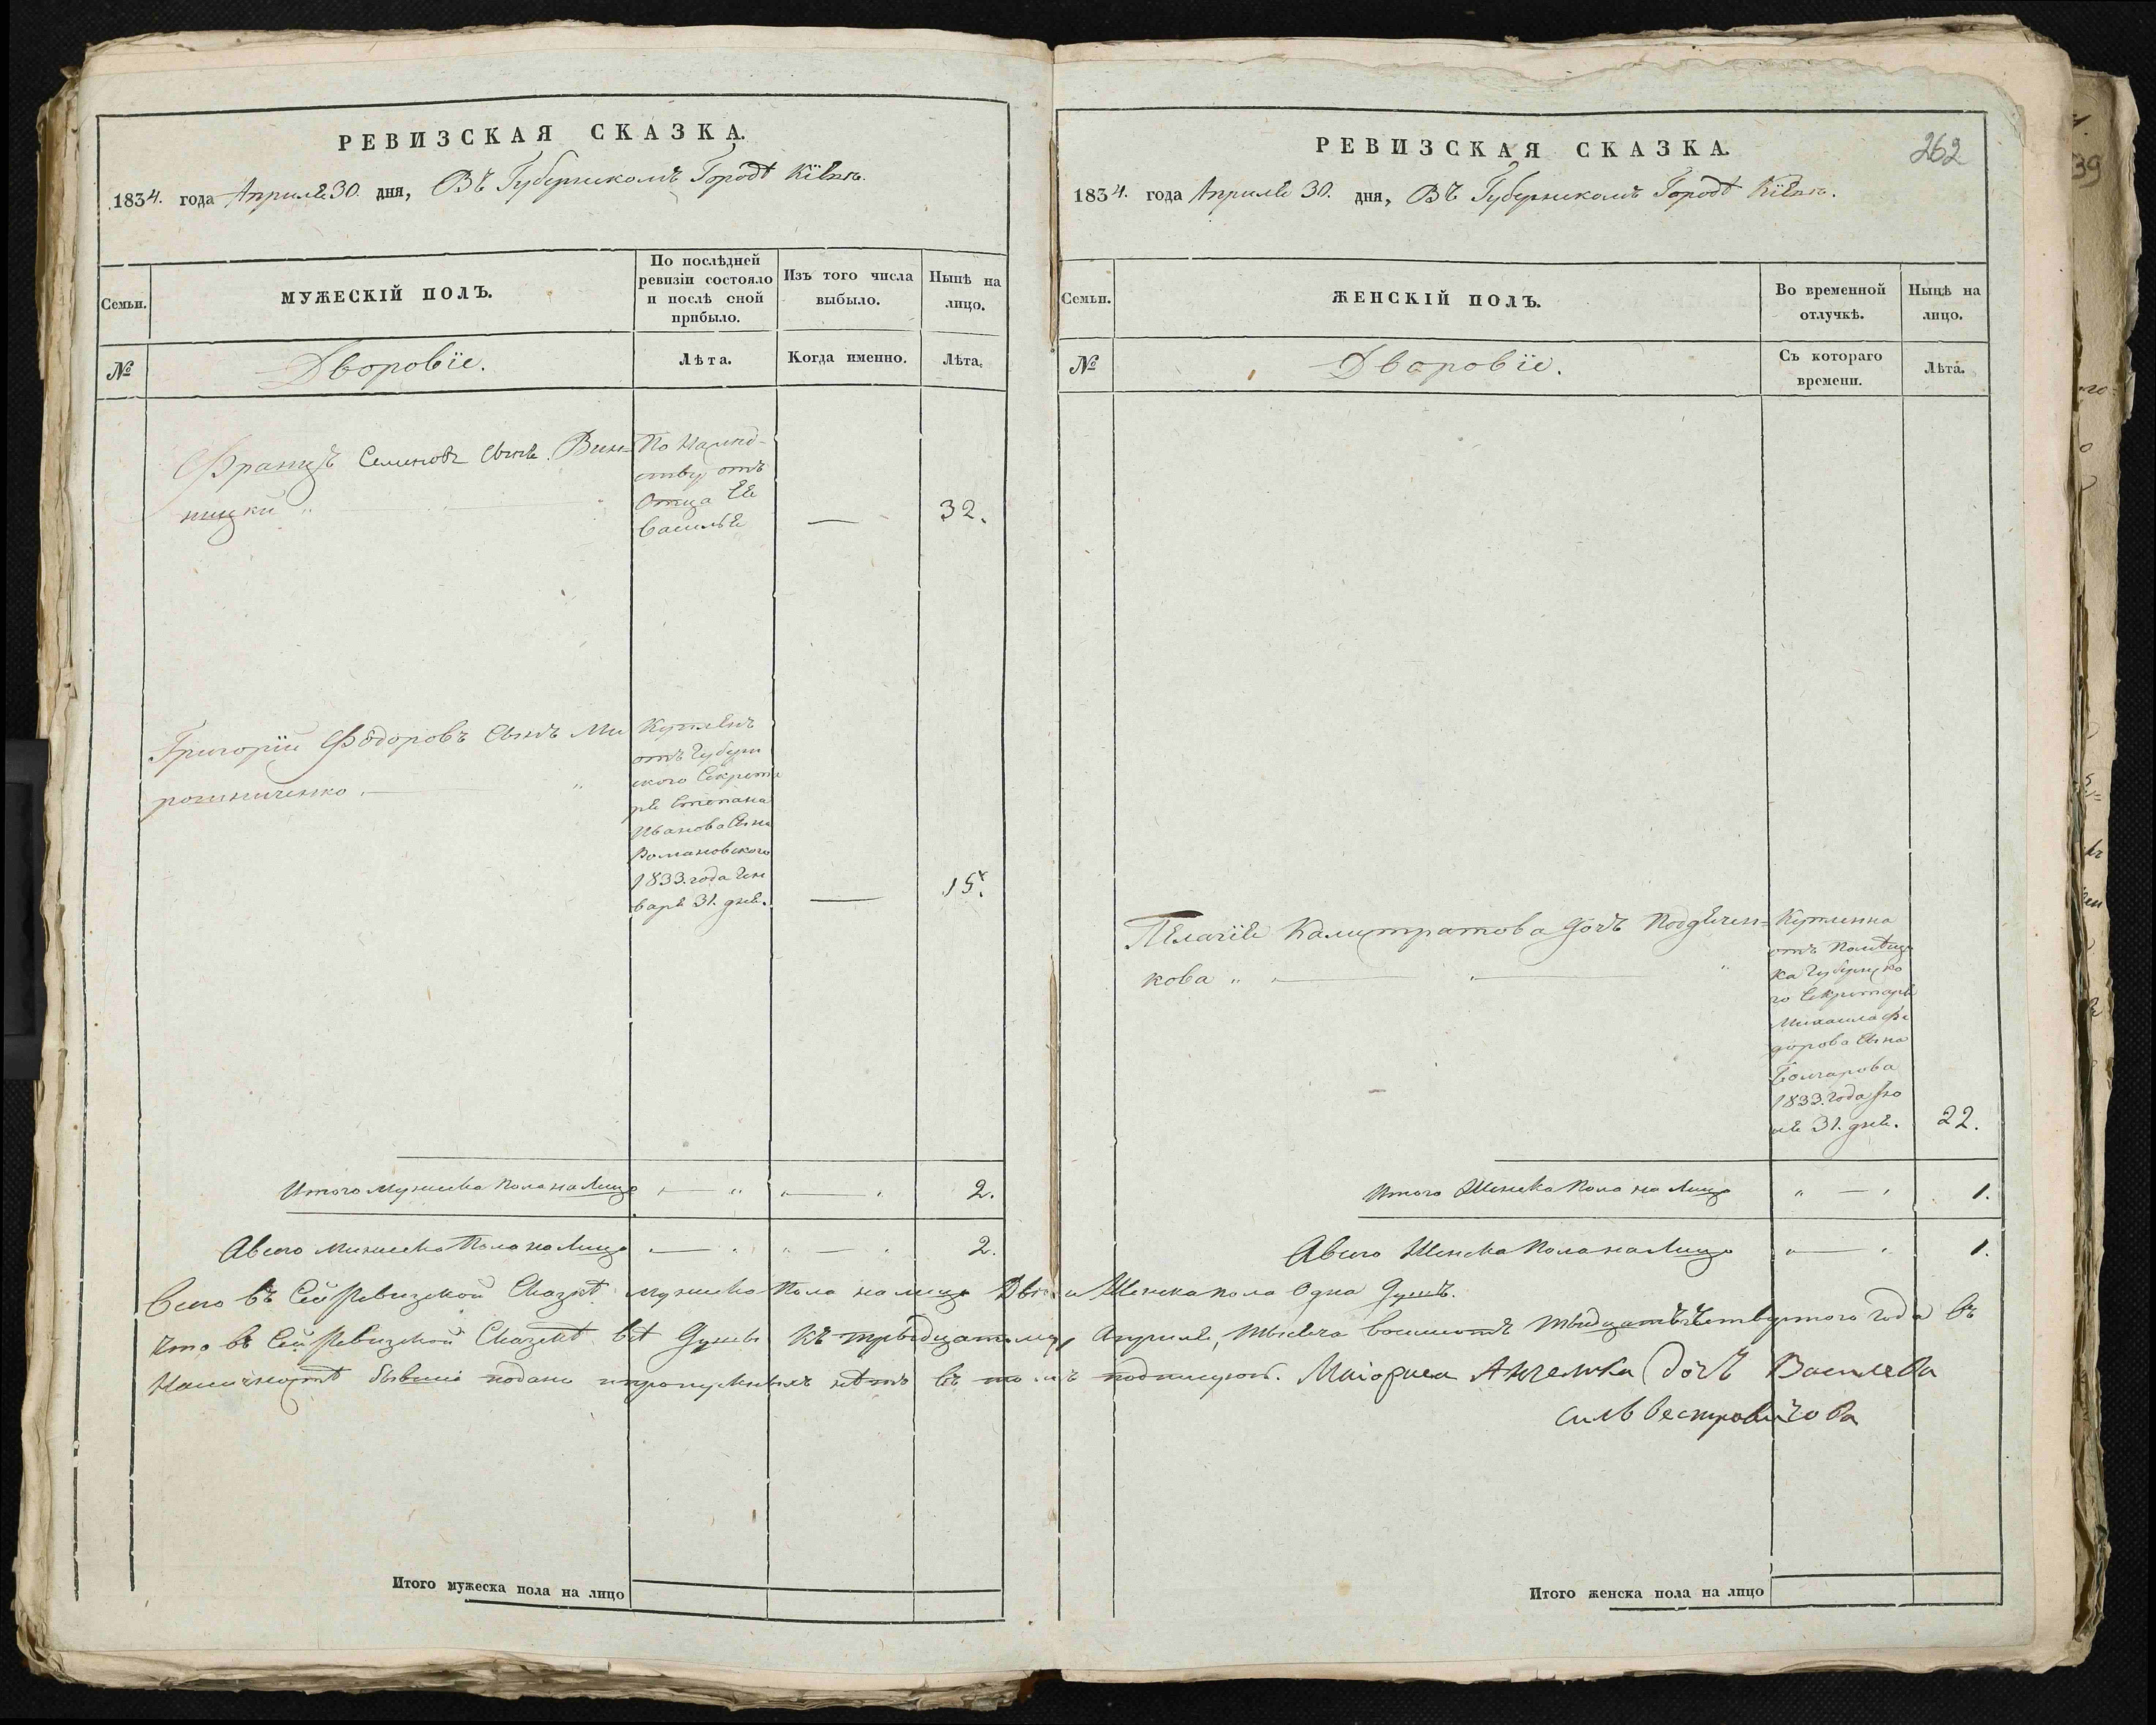 РЕВИЗСКАЯ СКАЗКА.
1834. года Апрıлѣ 30. дня, Въ Губернскомъ Городѣ Кіевѣ.
Семьи.
МУЖЕСКІЙ ПОЛЪ.
По послѣдней
ревизіи состояло
и послѣ оной
прибыло.
Изъ того числа
выбыло.
Нынѣ на
лицо.
№
Дворовіе.
Лѣта.
Когда именно.
Лѣта.
Францъ Семеновъ Сынъ Вин-
ницки
По Наслѣд-
ству отъ
Отца Ея
Василья
—
32.
Григорій Федоровъ Сынъ Ми
рошниченко
Купленъ
отъ Губерн
ского Секрета
ря Степана
Иванова Сына
Романовского
1833. года Ген
варя 31. дня.
—
15.
Итого Мужеска Пола на Лицо
2.
А всего Мужеска Пола на Лицо
2.
Итого мужеска пола на лицо
РЕВИЗСКАЯ СКАЗКА.
262
1834. года Апрıля 30. дня, Въ Губернскомъ Городѣ Кіевѣ.
Семьи.
ЖЕНСКІЙ ПОЛЪ.
Во временной
отлучкѣ.
Нынѣ на
лицо.
№
Дворовіе.
Съ котораго
времени.
Лѣта.
Пелагія Калистратова дочь
кова
Куплінна
отъ Помѣщи
ка Губернско
го Секретаря
Михаила Фе
дорова Сына
Болгарова
1833. года Ію
ля 31. дня.
22.
Итого Женска Пола на Лицо
1.
А всего Женска Пола на Лицо
1.
Всего въ Сей Ревизской Сказкѣ мужеска Пола на лицо Двѣ и Женска пола Одна Душъ.
Что въ Сей Ревизской Сказкѣ всѣ Души къ тридцатому Апреля, тысяча восимсотъ тридцать четвертого года въ
Наличности бывшіе подани и пропускныхъ нѣтъ въ томъ подписуюсь. Маіорша Ангелика дочъ Василева
Сильвестровичова
Итого женска пола на лицо